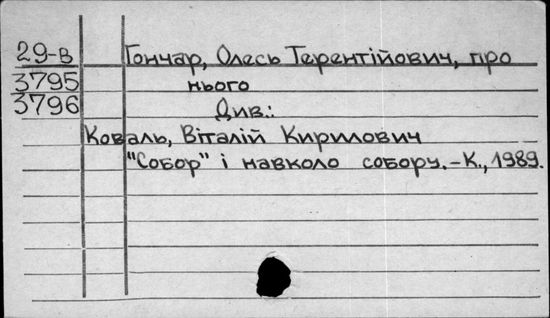 29-в Гончар, Олесь Терентійович, про
3795 нього
3796 Див.:
Коваль, Віталій Кирилович
"Собор" і навколо собору.-К., 1989.